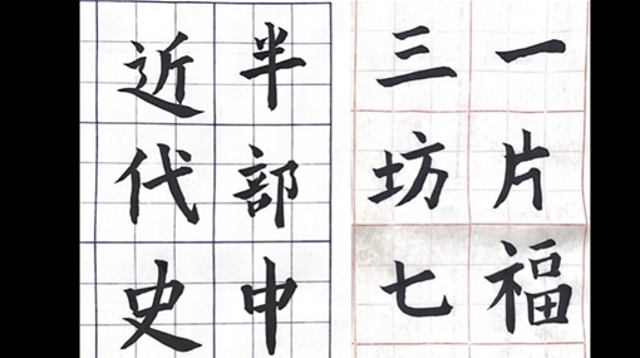 一片福
三坊七
半部中
近代史